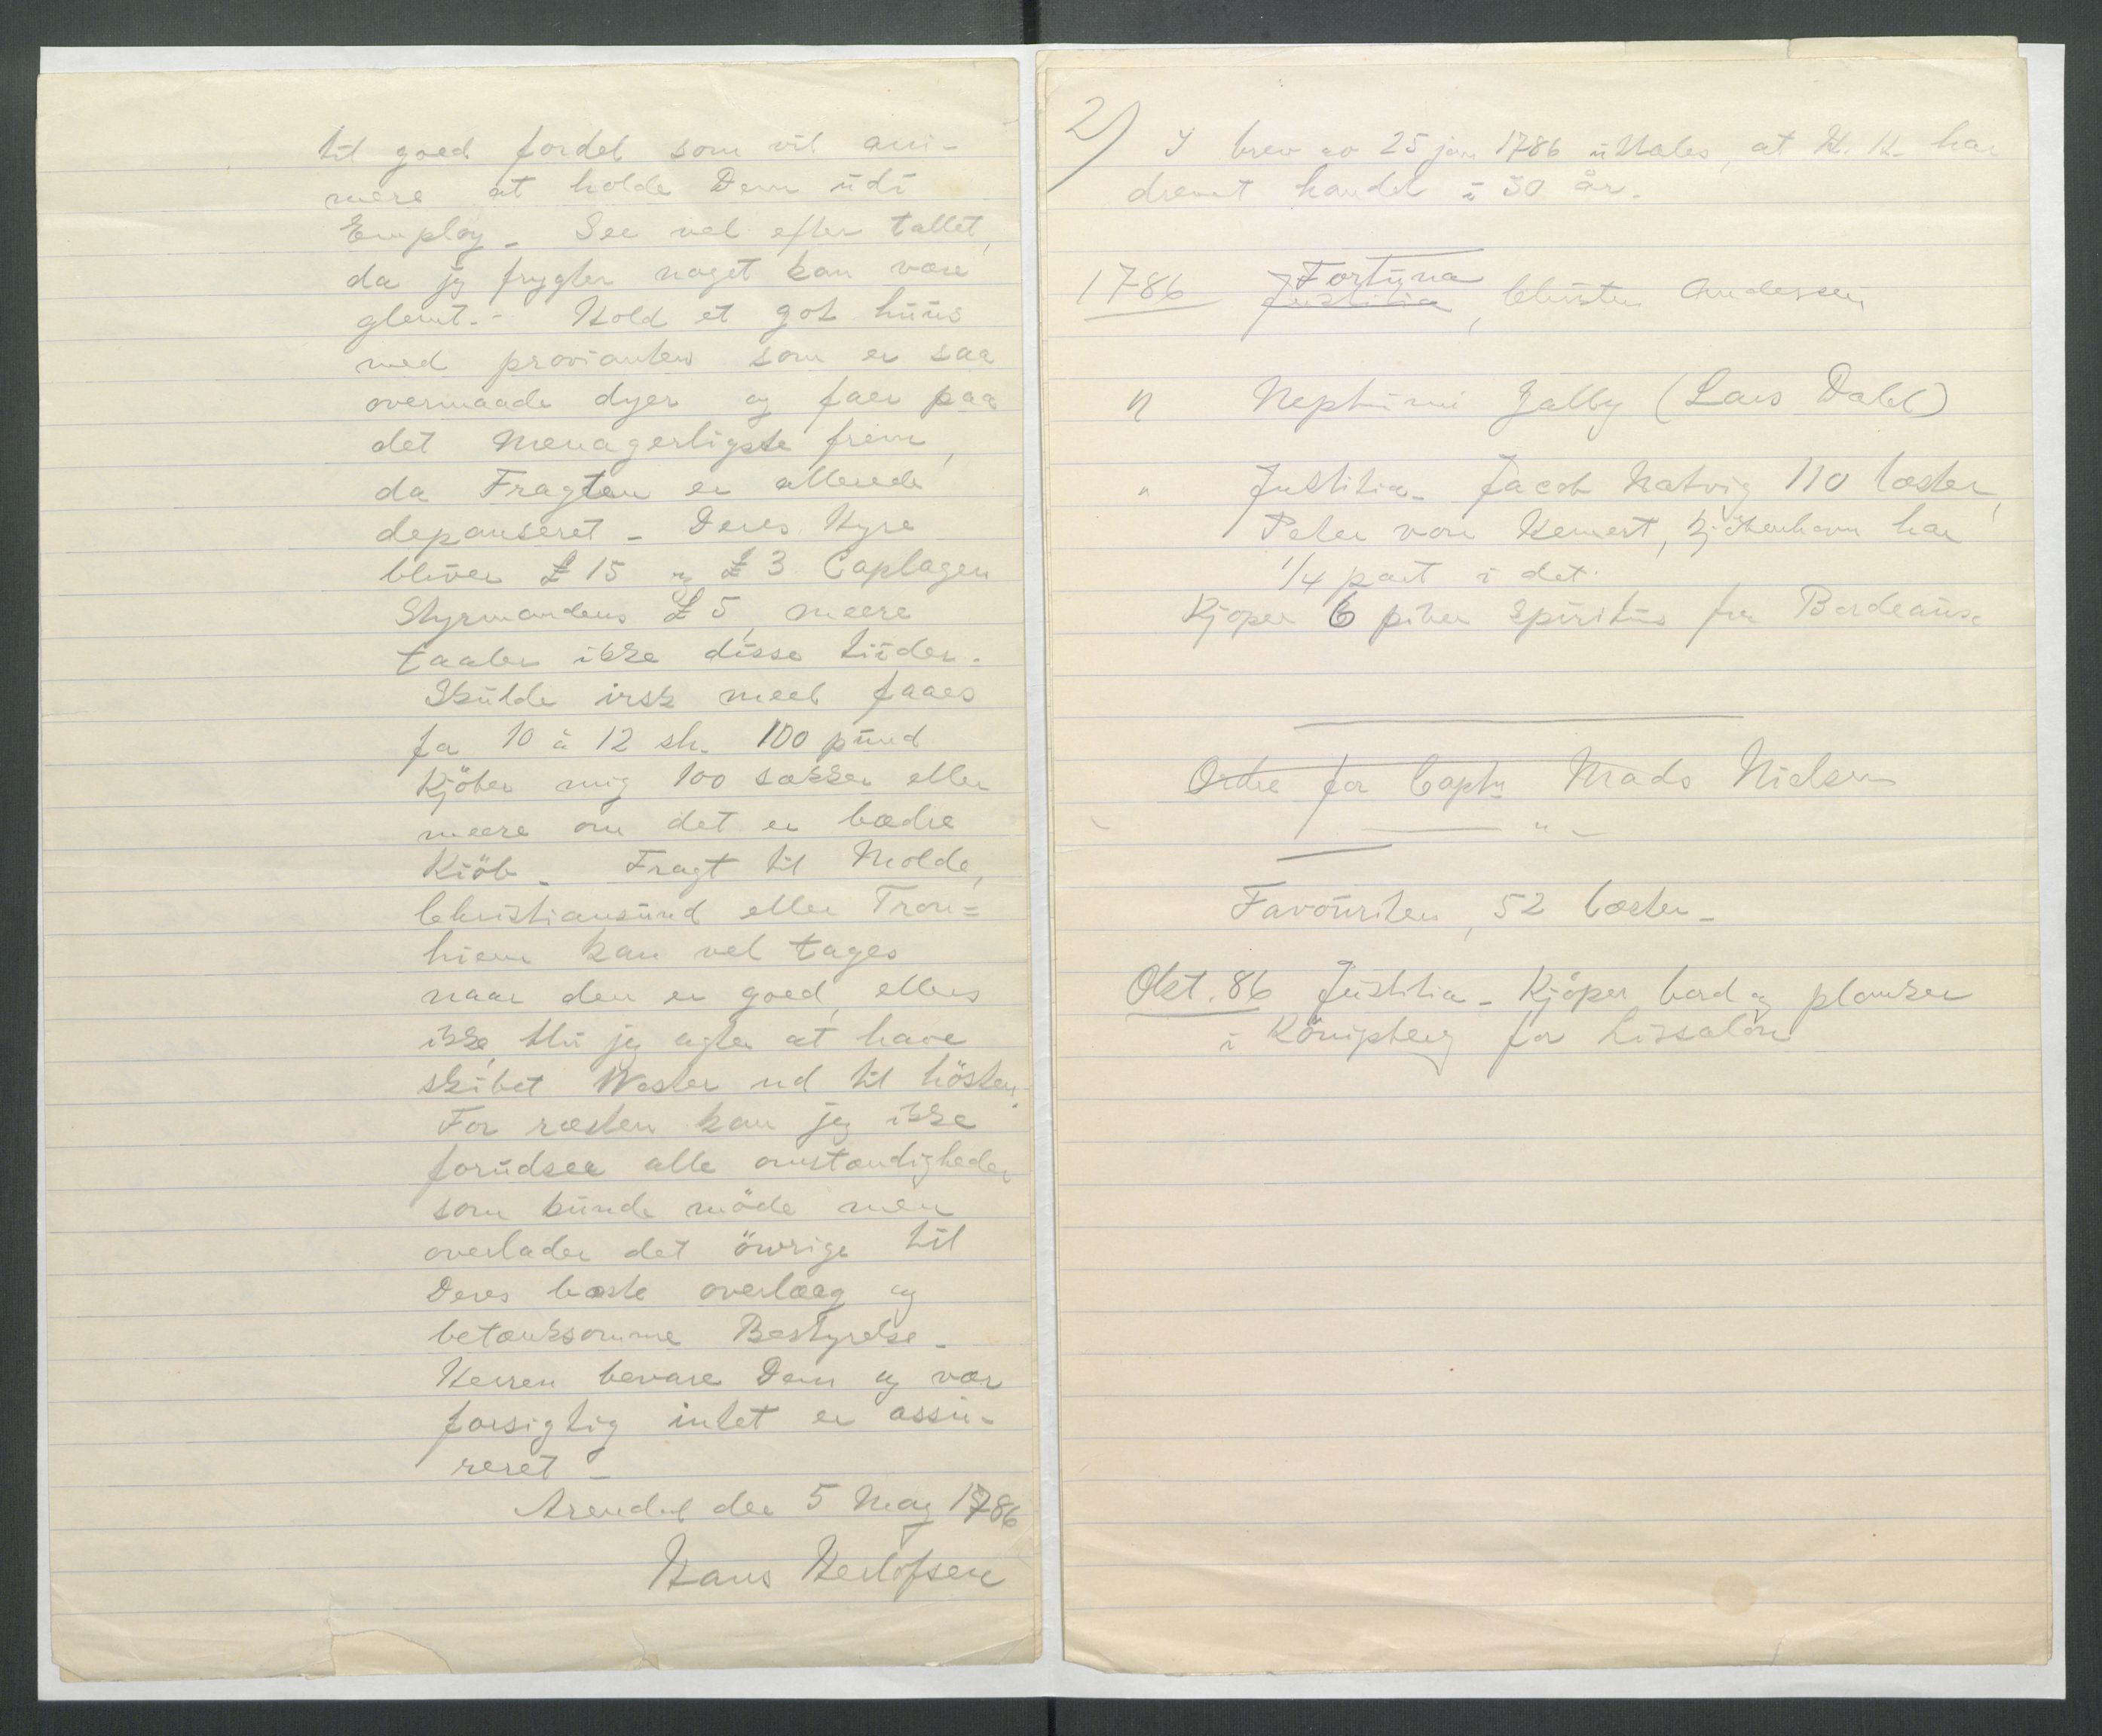 til goed fordel som vil ani-
mere at holde Dem udi
Employ - See vel efter tallet,
da jeg frygter noget kan være
glemt. - Hold et got huus
med provianten som er saa
overmaade dyer og faer paa
det Menagerligste frem,
da Fragten er allerede
depanseret - Deres Hyre
bliver £ 15 og £ 3 Caplagen
Styrmandens £ 5, meere
taaler ikke disse tiider.
Skulde irsk meel faaes
for 10 à 12 sh. 100 pund
Kjöber mig 100 sækker eller
meere om det er bædre
Kiöb - Fragt til Molde,
Christiansund eller Tron=
hiem kan vel tages
naar den er goed, ellers
ikke, thi jeg agter at have
skibet Wester ud til hösten.
For resten kan jeg ikke
forudsee alle omstændigheder
som kunde möde men
overlader det öwrige til
Deres bæste overlæg og
betænksomme Bestyrelse -
Herren bevare Dem og vær
forsigtig intet er assu-
reret -
Arendal den 5 May 1786
Hans Herlofsen
2) I brev av 25 jan 1786 uttales, at H. H. har
drevet handel i 30 år.
1786 Fortuna
Justitia, Christen Andersen
" Neptuni Jalby (Lars Dahl)
" Justitia - Jacob Natvig 110 læster,
Peter von Kemert, Kjöbenhavn har
1/4 part i det.
Kjøper 6 piber Spiritus fra Bordeaux
Ordre for Captn Mads Nielsen
— " —
Favouriten, 52 læster -
Okt. 86 Justitia - Kjöper bord og planker
i Königsberg for Lissabon